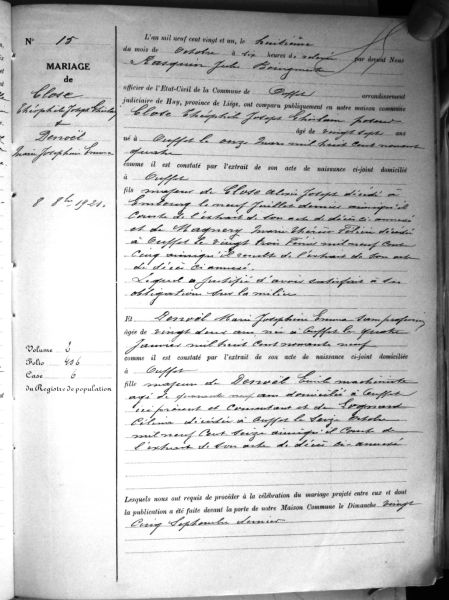 N° 15
MARIAGE
de
Close
Théophile Joseph Ghislain
&
Denoël
Marie Josephine Emma
8 8bre 1921.
Volume 2
Folio 436
Case 6
du Registre de population
L'an mil neuf cent vingt et un, le huitième
du mois de Octobre à six heures de relevée par devant Nous
Rasquin Jules
officier de l'Etat-Civil de la Commune de Ouffet arrondissement
judiciaire de Huy, province de Liége, ont comparu publiquement en notre maison commune
Close Théophile Joseph Ghislain
âgé de vingt sept ans
né à Ouffet le onze Mars mil huit cent nonante
quatre
comme il est constaté par l'extrait de son acte de naissance ci-joint domicilié
à Ouffet
fils majeur de Close Alexis Joseph décédé à
Embourg le neuf Juillet dernier ainsi qu'il
Conste de l'extrait de son acte de décès ci annexé
et de Magnery Marie Thérèse décédée
à Ouffet le vingt trois mil neuf Cent
Cinq ainsi qu'il resulte de l'extrait de son acte
de décès ci annexé.
Lequel a justifié d'avoir satisfait à ses
obligations sur la milice
Et Denoël Marie Josephine Emma sans profession
âgée de vingt deux ans née à Ouffet le quatre
Janvier mil huit Cent nonante neuf
comme il est constaté par l'extrait de son acte de naissance ci-joint domiciliée
à Ouffet
fille majeure de Denoël Emile machiniste
agé de quarante neuf ans domicilié à Ouffet
ici présent et Consentant et de Sognard
Célina décédée à Ouffet le Seize Octobre
mil neuf Cent Seize ainsi qu'il Conste de
l'extrait de son acte de décès ci-annexé
Lesquels nous ont requis de procéder à la célébration du mariage projeté entre eux et dont
la publication a été faite devant la porte de notre Maison Commune le Dimanche vingt
Cinq Septembre dernier